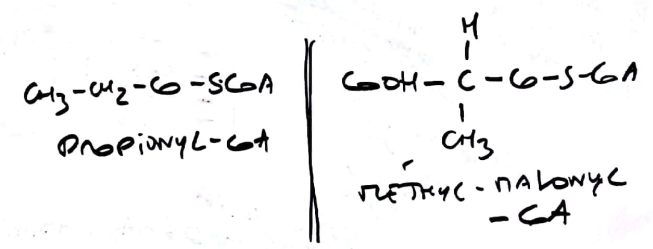 CH3-CH2-CO-SCoA
Propionyl-CoA
H
COOH-C-CO-S-CoA
CH3
MÉTHYL-MALONYL
-CoA